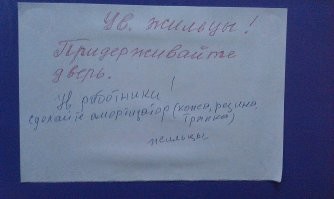 Ув. жильцы!
Придерживайте
дверь.
работники!
сделайте амортизатор (кожа, резина,
тряпка)
жильцы